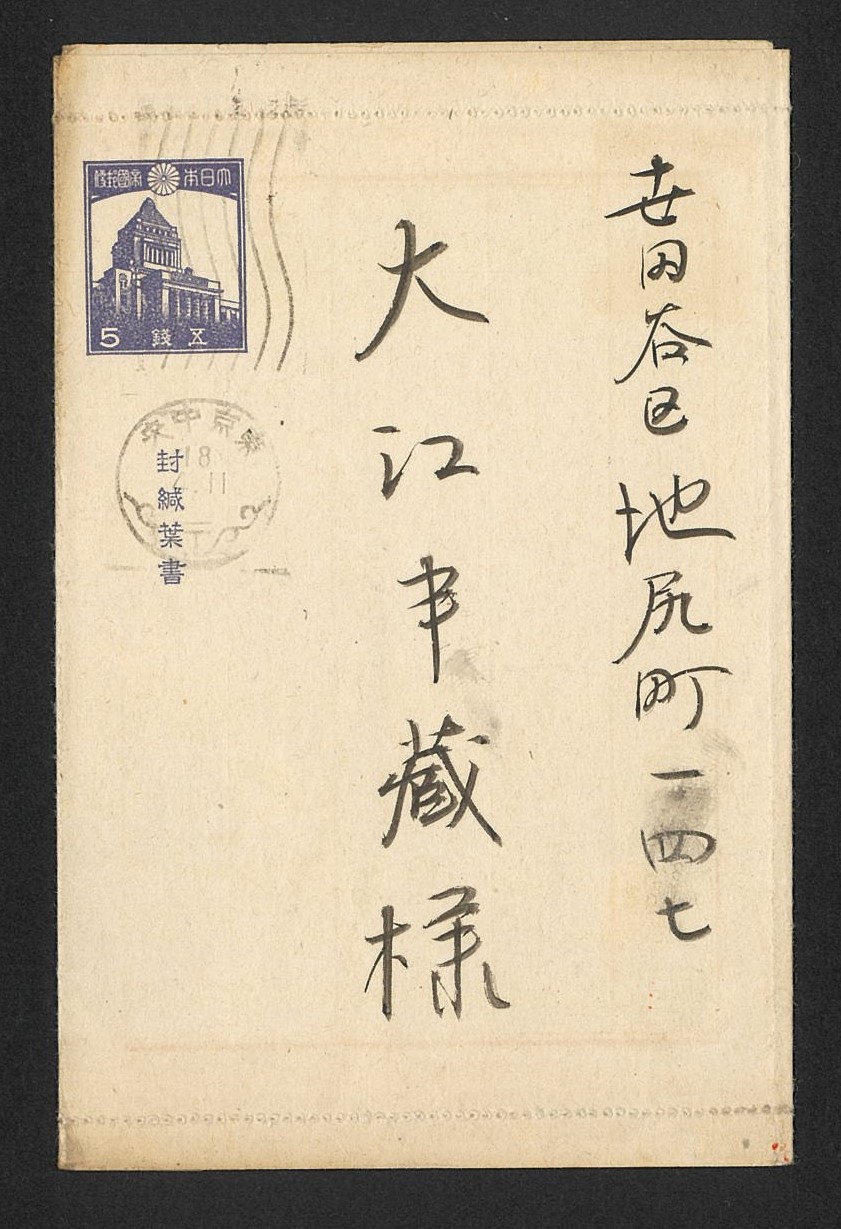 世田谷区地尻町一四七
大江中藏様
大日本帝國郵便
五錢5
東京中央
18
11
封緘葉書